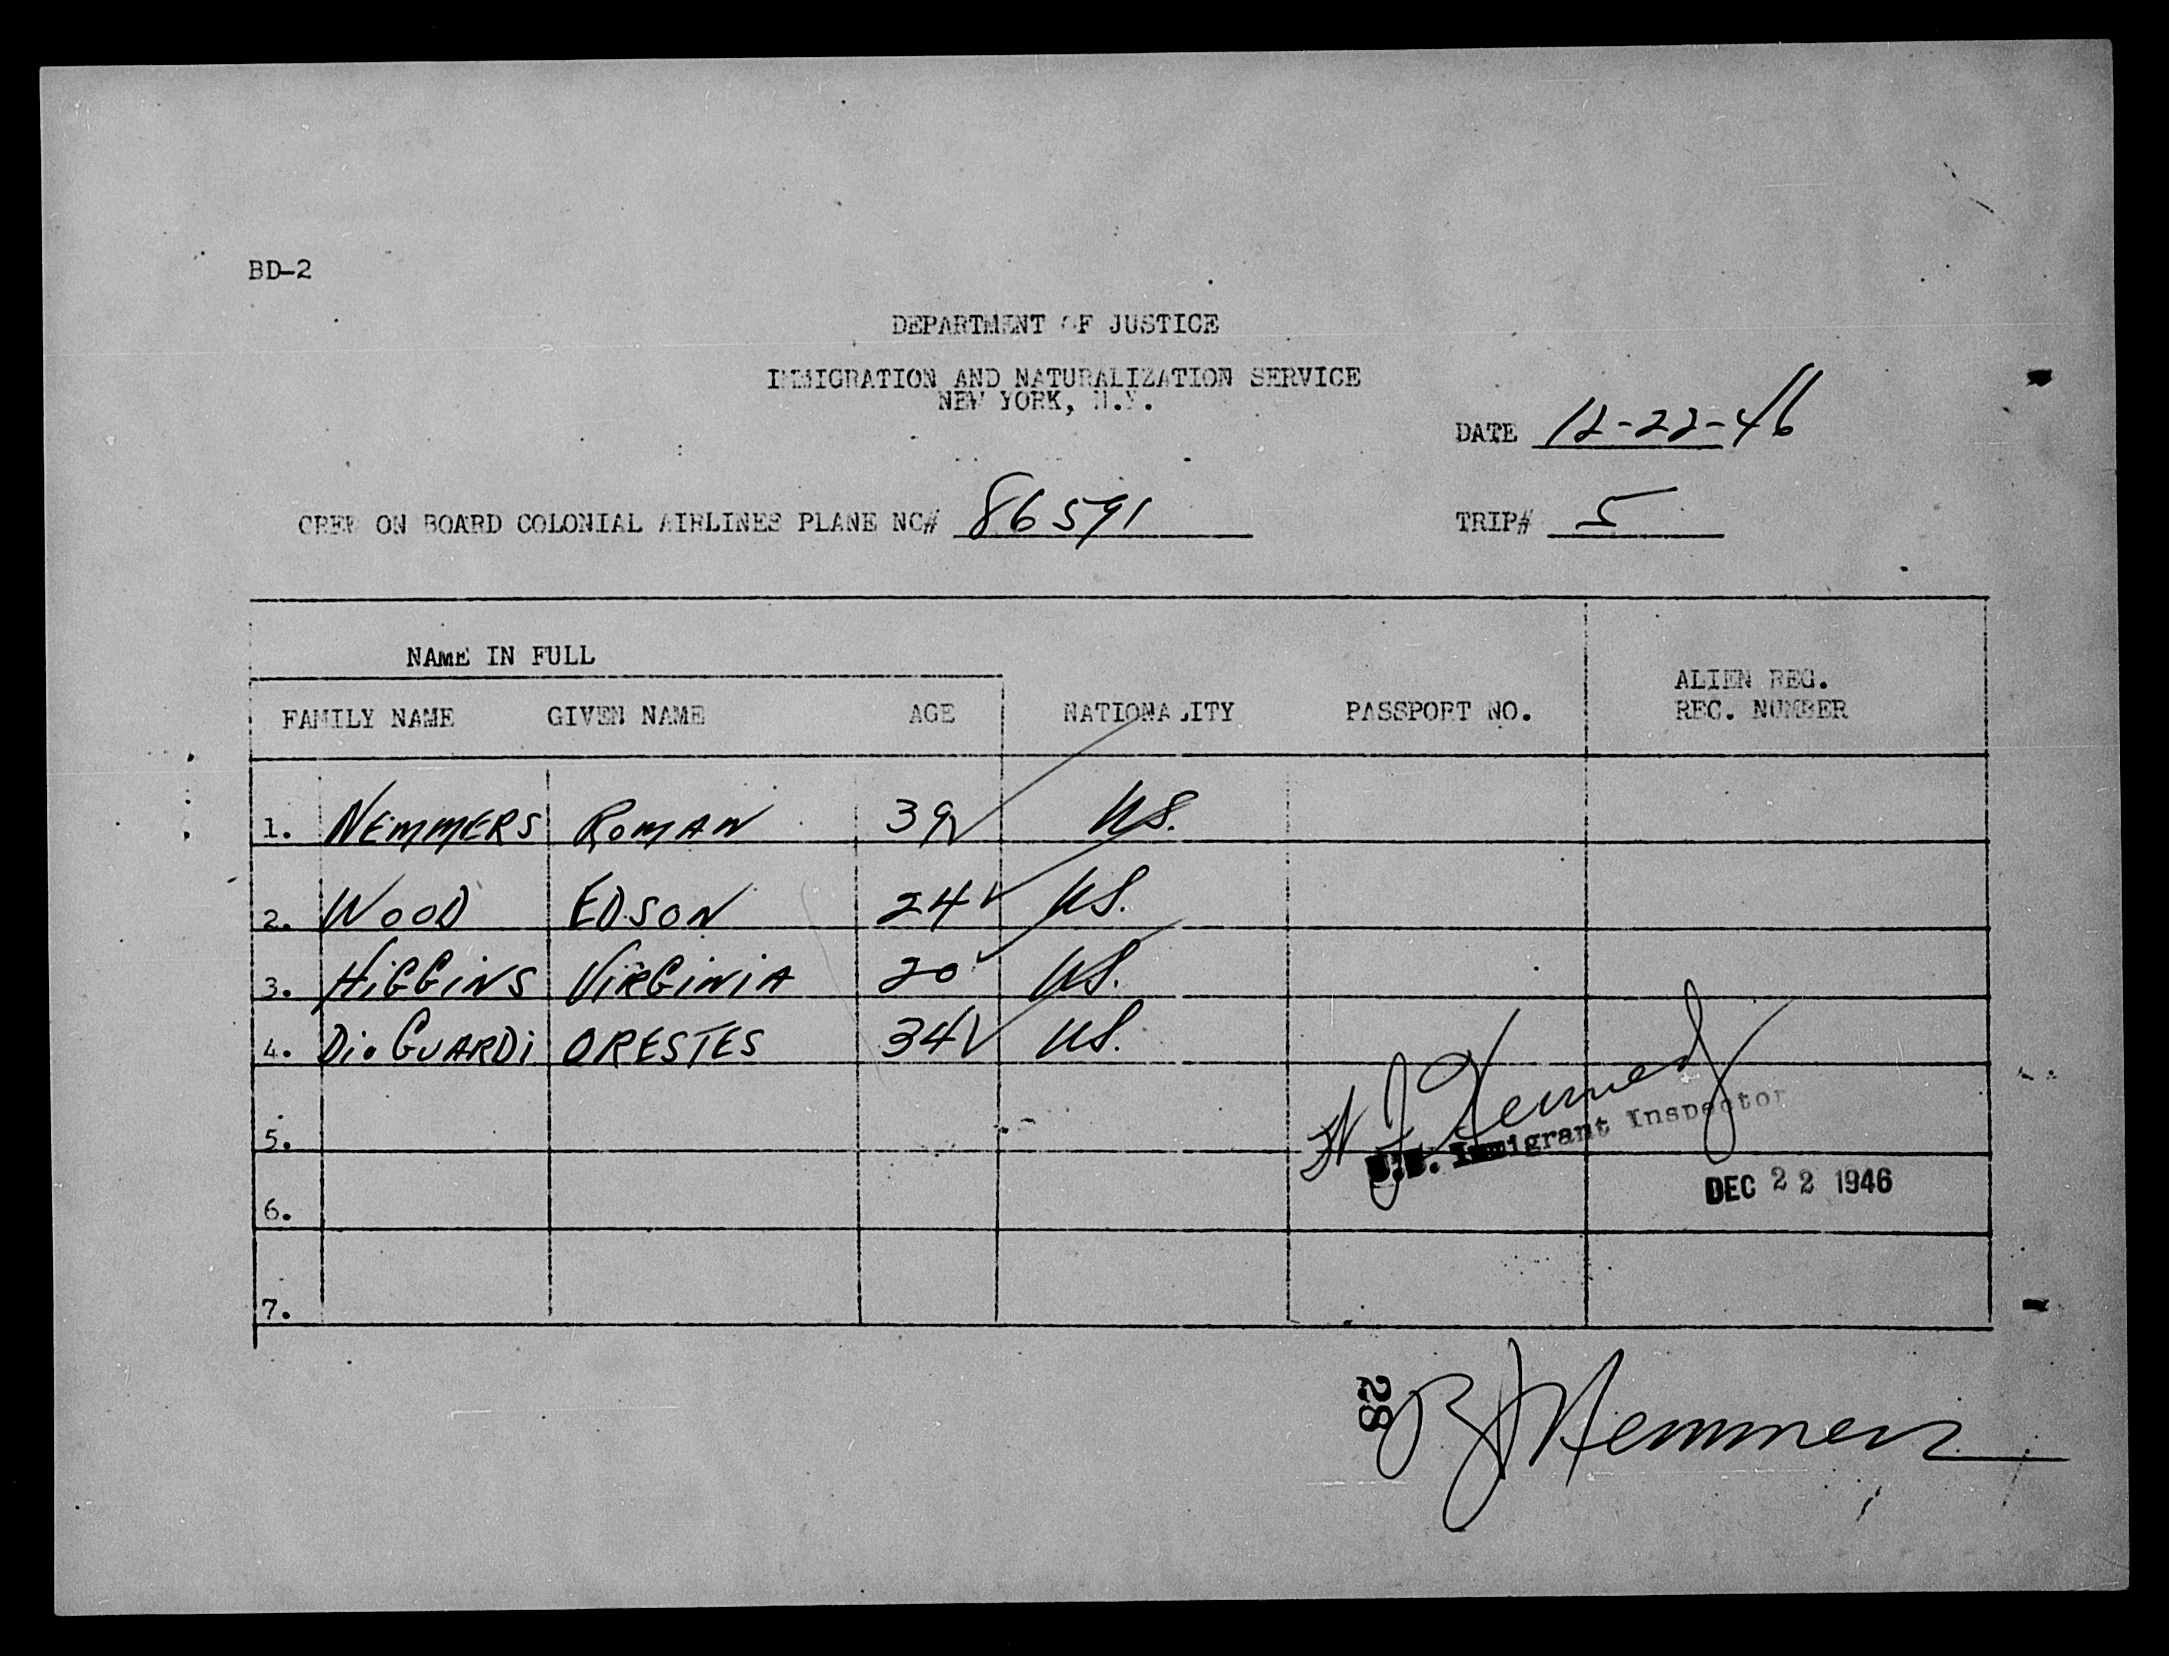 BD-2
DEPARTMENT OF JUSTICE
IMMIGRATION AND NATURALIZATION SERVICE
NEW YORK, N.Y.
DATE 12-22-46
CREW ON BOARD COLONIAL AIRLINES PLANE NC# 86591 TRIP# 5
NAME IN FULL
FAMILY NAME GIVEN NAME AGE NATIONALITY PASSPORT NO. ALIEN REG. REC. NUMBER
1. NEMMERS ROMAN 39 US.
2. WOOD EDSON 24 US.
3. HIGGINS VIRGINIA 20 US.
4. DioGUARDi ORESTES 34 US.
5.
Kennedy
U.S. Immigrant Inspector
DEC 22 1946
6.
7.
28
R J Nemmers